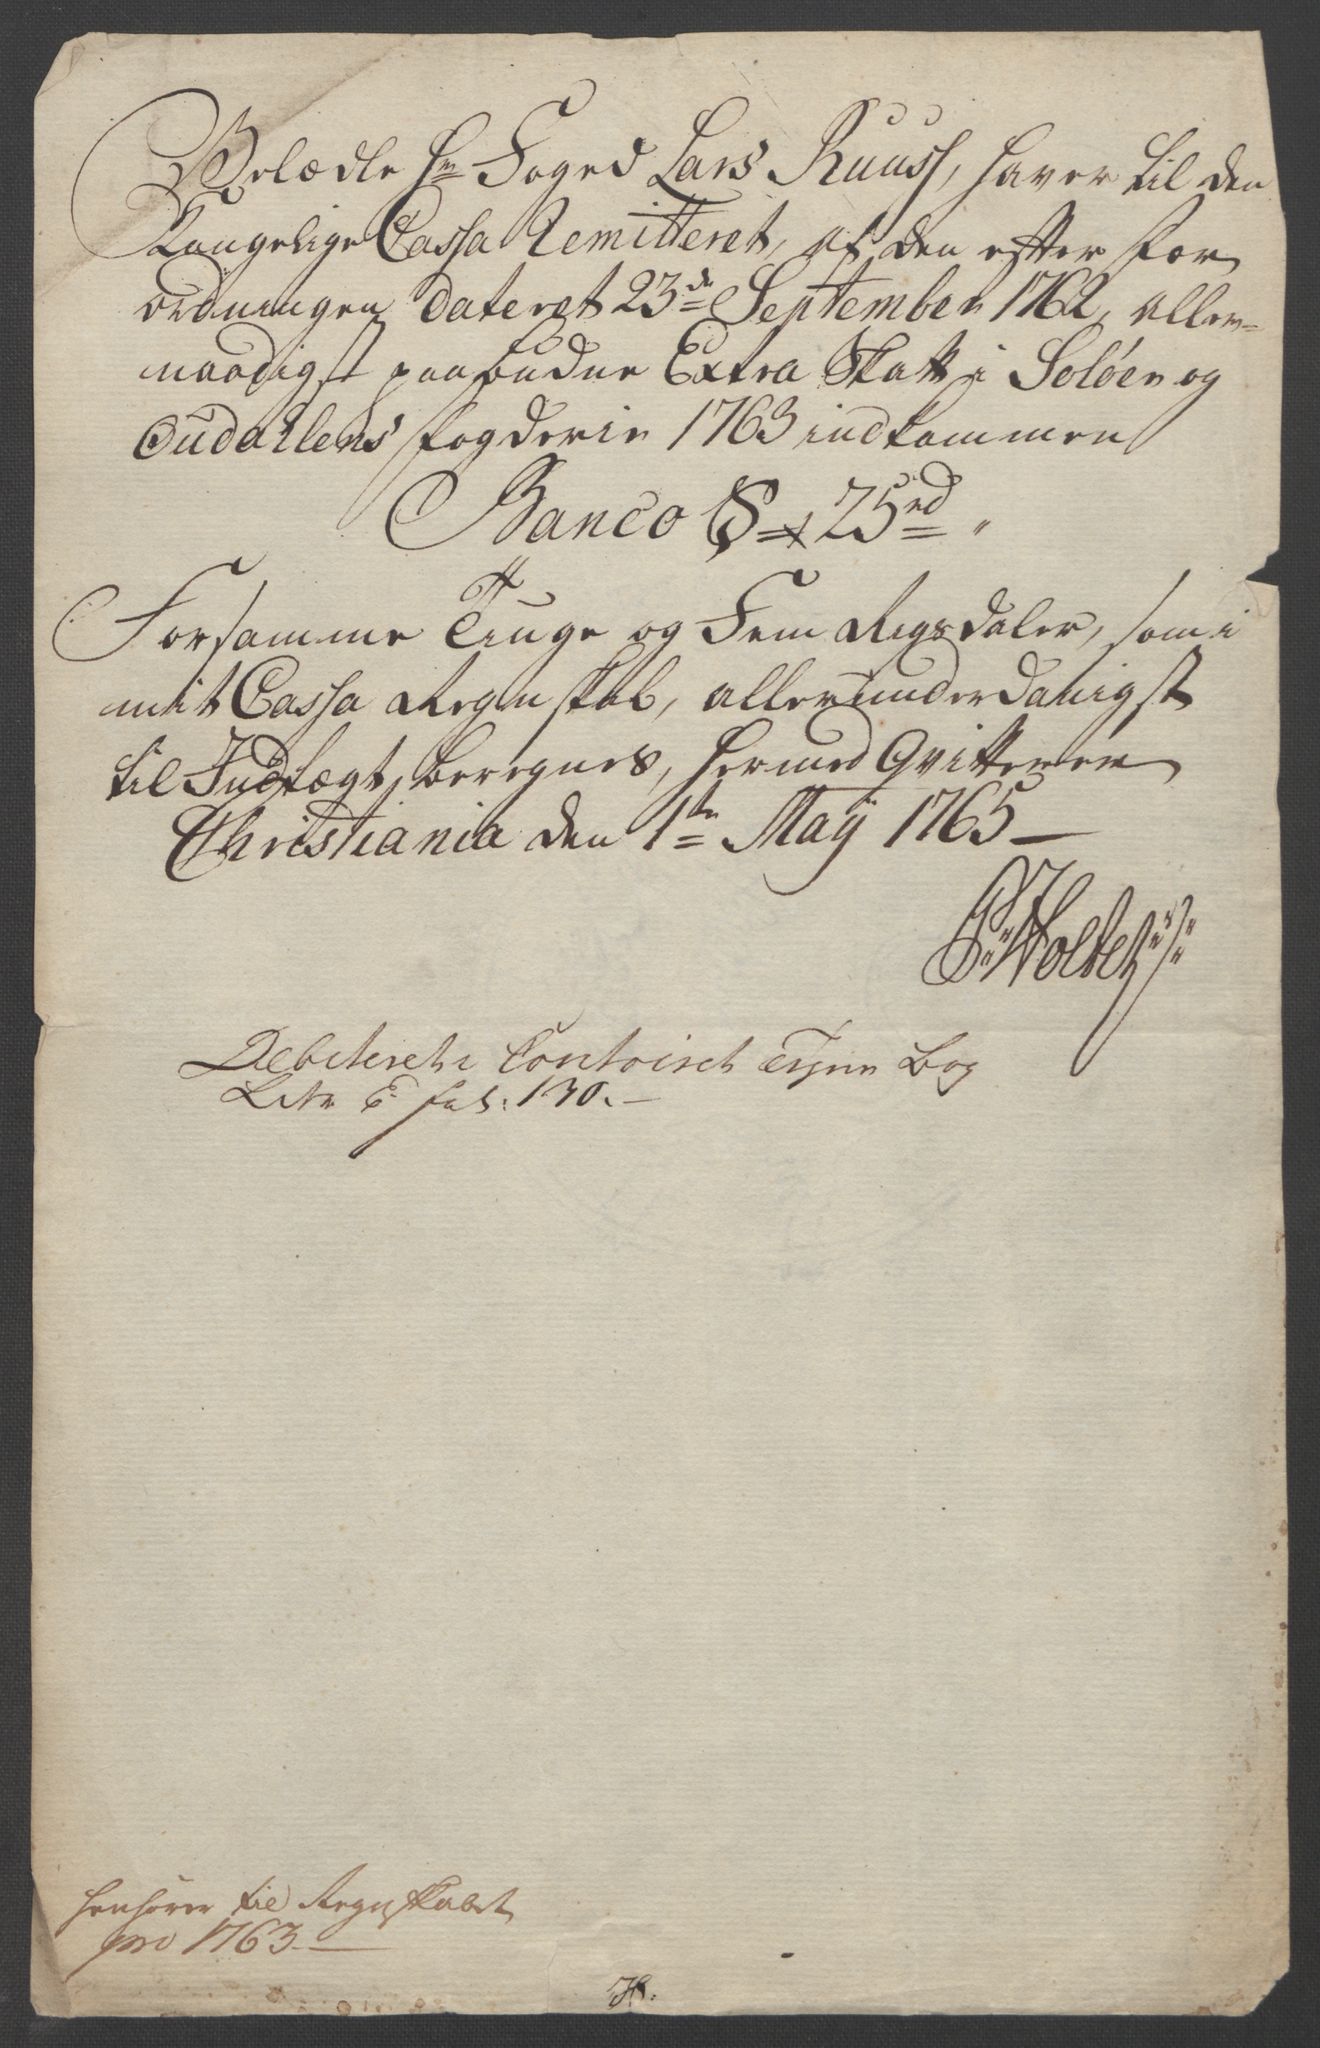 Velædle Hr Foged Lars Ruush, haver til den
Kongelige Cassa Remitteret, af den efter For
ordningen Dateret 23de September 1762, aller=
naadigst paabudne Extra Skatt i Soløer og
Oudallens fogderie 1763 indkommen
Banco 25 rd "
Forsamme Tiuge og Fem Rigsdaler, som i
mit Cassa Regnskab, allerunderdanigst
til Indtægt beregnes, hermed Qvitterer
Christiania den 1te Maÿ 1765 —
Debiteret i Contoiret Bog
Litr E fol: 130. —
henhører til Regnskabet
pro 1763. —